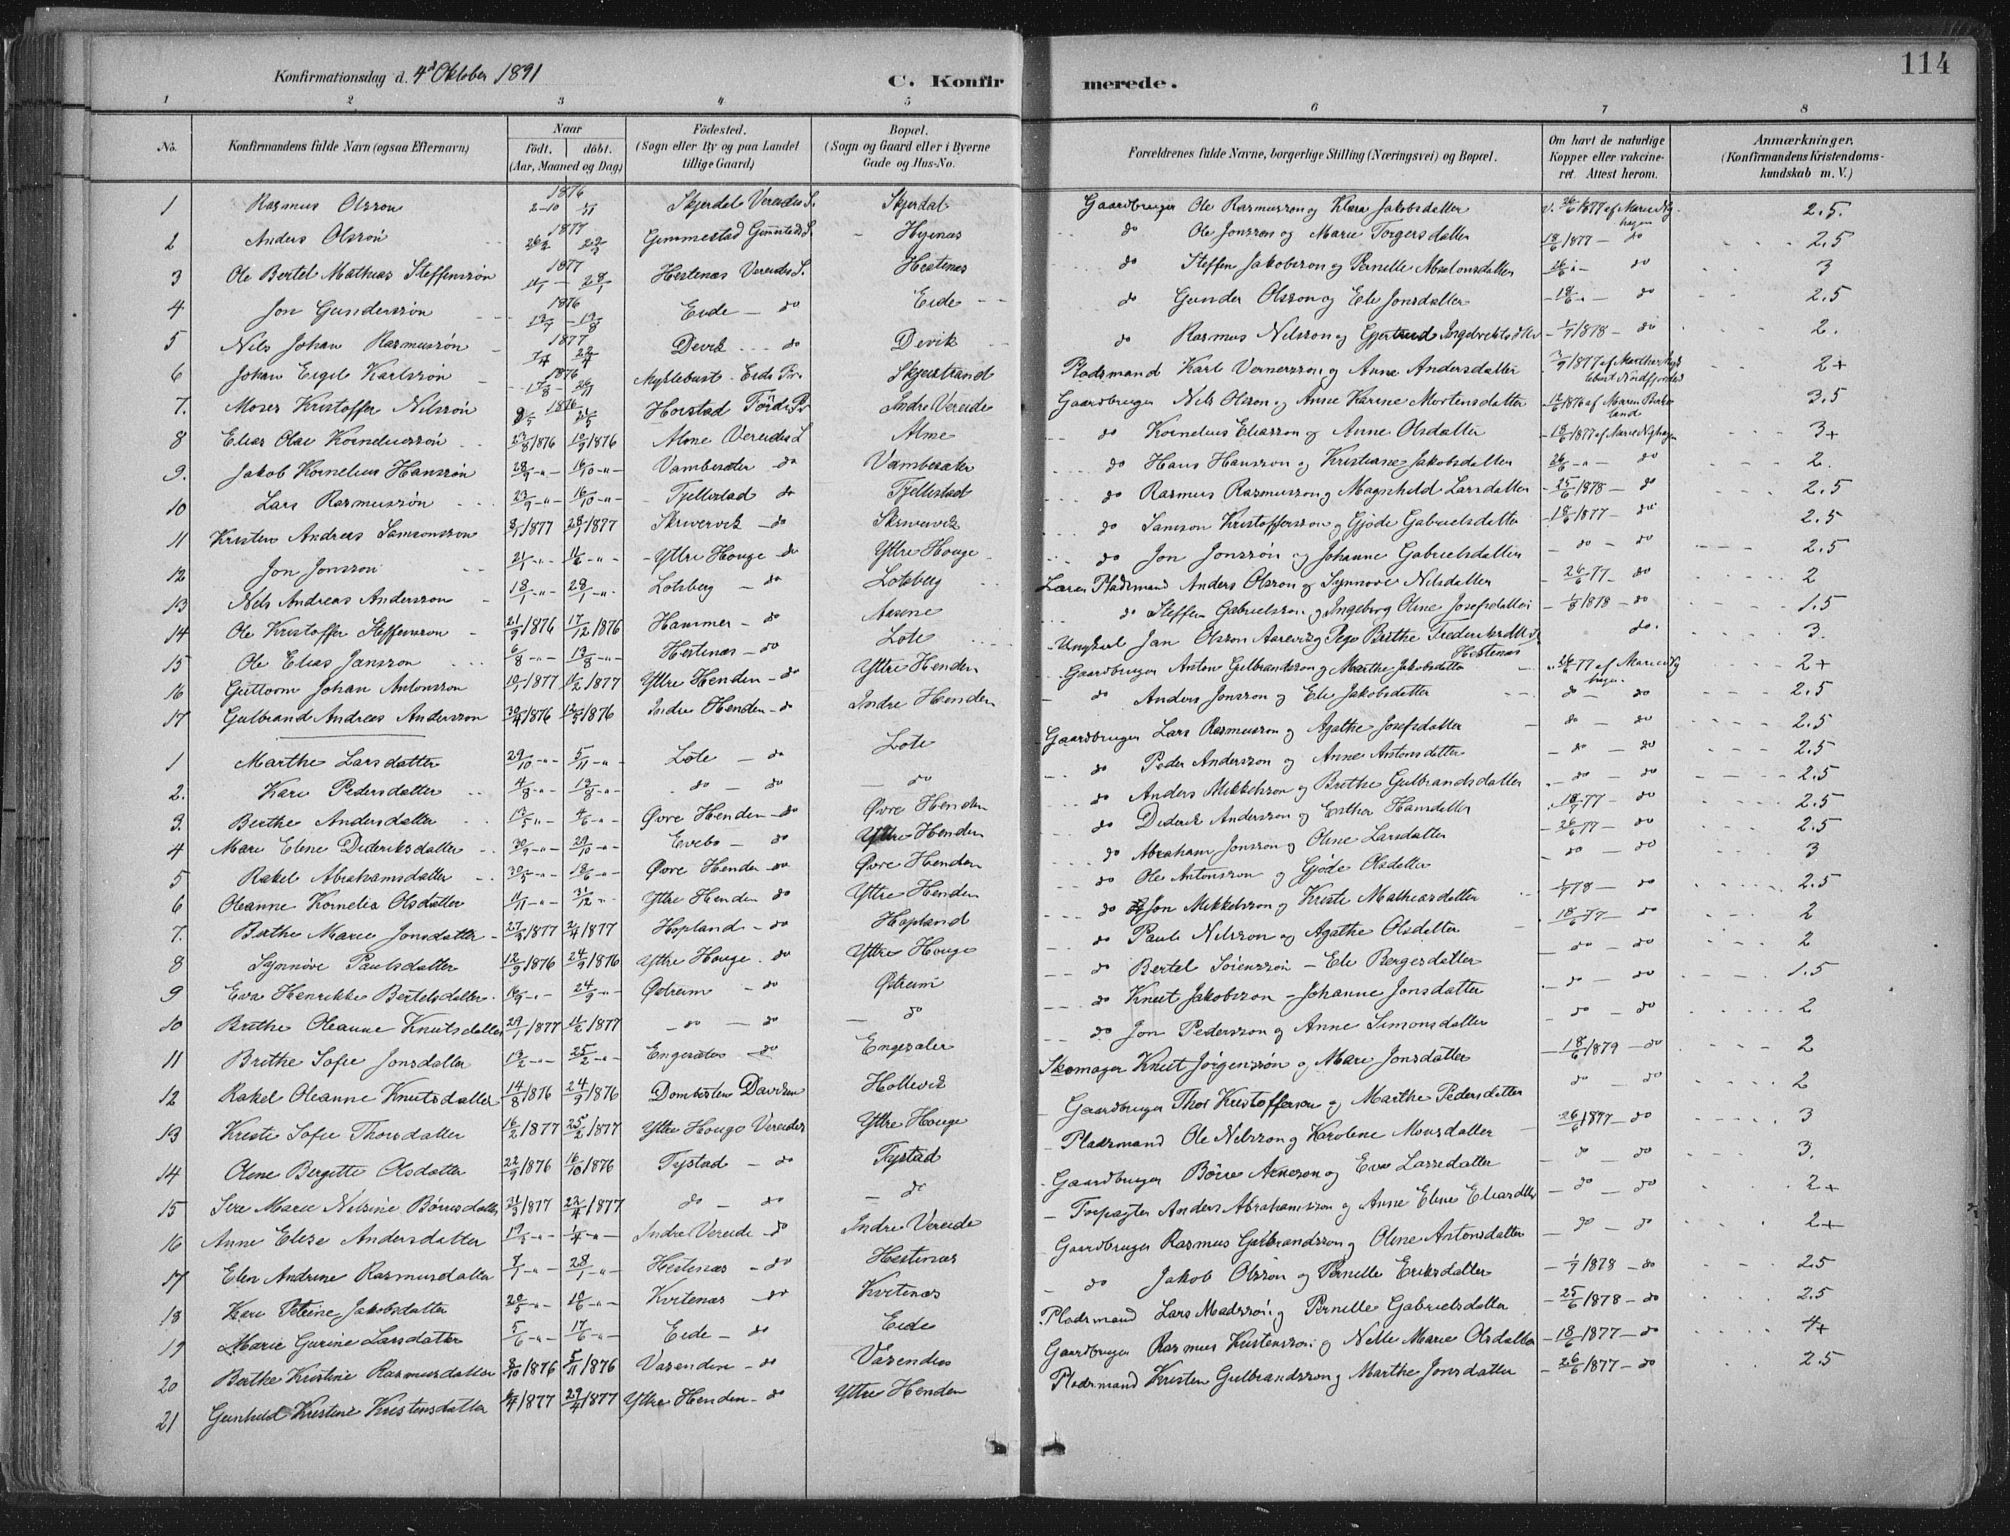 114
Konfirmationsdag d. 4d Oktober 1891
C. Konfirmerede.
1 2 3 4 5 6 7 8
No. Konfirmandens fulde Navn (ogsaa Efternavn) Naar födt. döbt. (Aar, Maaned og Dag) Födested. (Sogn eller By og paa Landet tillige Gaard) Bopæl. (Sogn og Gaard eller i Byerne Gade og Hus-No. Forældrenes fulde Navne, borgerlige Stilling (Næringsvei) og Bopæl. Om havt de naturlige Kopper eller vakcineret. Attest herom. Anmærkninger. (Konfirmandens Kristendomskundskab m. V.)
1 Rasmus Olsson 1876 Skjerdal Vereides S. Skjerdal Gaardbruger Ole Rasmusson og Klara Jakobsdatter 2.5.
2 Anders Olssøn 1877 Gimmestad Hyenæs do Ole Jonsson og Marie Torgersdatter 18/6 1877 - do 2.5
3 Ole Bertel Mathias Steffenssøn 1877 Hestenæs Vereides S. Hestenæs do Steffen Jakobsson og Pernelle Absalonsdatter do 3
4 Jon Gunderssøn 1876 Eide - do Eide do Gunder Olsson og Eli Jonsdatter do 2.5
5 Nils Johan Rasmussøn 1877 Devik do Devik do Rasmus Nilsson og Gjertrud 1/7 1878 - do 2.
6 Johan Eigil Karlssøn 1876 Myklebust Eids Skjestrand Pladsmand Karl Vernersson og Anne Andersdatter 2+
7. Moses Kristoffer Nilssøn 1876 Horstad Førde Indre Vereide Gaardbruger Nils Olsson og Anne Karine Mortensdatter 3.5
8 Elias Olai Korneliussøn 1876 1876 Alme Vereides S Alme do Kornelius Eliasson og Anne Olsdatter 18/6 1877 3+
9. Jakob Kornelius Hanssøn Vambesæter do Vambesæter do Hans Hansson og Kristiane Jakobsdatter do 2.
10 Lars Rasmussøn 23/9 16/10 Fjellestad do Fjellestad do Rasmus Rasmusson og Magnhild Larsdatter 25/6 1878 - do 2.5
11 Kristen Andreas Samsonsson 1877 1877 Skrivervik - do Skrivervik do Samson Kristoffersson og Gjøde Gabrielsdatter 18/6 1877 - do 2.5
12 Jon Jonsson Yttre Houge do Yttre Houge do Jon Jonssøn og Johanne Gabrielsdatter - do - do 2.5
13 Nils Andreas Andersson 18/1 28/1 Lotsberg - do Lotsberg Pladsmand Anders Olsson og Synnøve Nilsdatter 26/6 77 - do 2
14 Ole Kristoffer Steffensson 21/9 1876 17/12 1876 Hammer - do Aasene do Steffen Gabrielsson og Ingeborg Oline Josefsdatter 1/8 1878 - do 1.5
15 Ole Elias Jansson 6/8 13/8 Hestenæs - do Lote Ungkarl Jan Olsson og Pige Brithe Frederiksd. Hestenæs do 3.
16 Guttorm Johan Antonsson 1877 1877 Yttre Henden - do Yttre Henden Gaardbruger Anton Gulbrandsson og Marthe Jakobsdatter 2+
17 Gulbrand Andreas Andersson 1876 1876 Indre Henden - do Indre Henden do Anders Jonsson og Eli Jakobsdatter do - do 2.5
1 Marthe Larsdatter 29/10 5/11 Lote - do Lote Gaardbruger Lars Rasmusson og Agathe Josefsdatter do - do 2.5
2. Kari Pedersdatter 4/8 13/8 do - do do do Peder Andersson og Anne Antonsdatter do - do 2.5
3. Berthe Andersdatter Øvre Henden - do Øvre Henden do Anders Mikkelsson og Brithe Gulbrandsdatter do - do 2.5
4 Mari Elene Dideriksdatter 30/9 29/10 Evebø - do Yttre Henden do Diderik Andersson og Esther Hansdatter 77 - do 2.5
5 Rakel Abrahamsdatter Øvre Henden - do Øvre Henden do Abraham Jonsson og Oline Larsdatter 26/6 77 - do 2.5
6 Oleanne Kornelia Olsdatter 11/11 31/12 Yttre Henden do Yttre Henden do Ole Antonsson og Gjøde Olsdatter do - do 3
7. Brithe Marie Jonsdatter 1877 1877 Hopland - do Hopland do Jon Mikkelsson og Kristi Mathiasdatter 78 - do 2.5
8 Synnøve Paulsdatter 12/9 1876 24/9 1876 Yttre Houge do Yttre Houge do Paul Nilsson og Agathe Olsdatter 18/6 77 - do 2
9 Eva Henrikke Bertelsdatter 24/9 Østrem - do Østrem do Bertel Sørenssøn - Eli Bergesdatter do - do 2
10 Brithe Oleanne Knutsdatter 29/1 1877 11/2 1877 do - do do do Knut Jakobsson - Johanne Jonsdatter do - do 1.5
11 Brithe Sofie Jonsdatter 25/2 Engesæter do Engesæter do Jon Pedersson og Anne Simonsdatter do - do 2
12 Rakel Oleanne Knutsdatter 14/8 1876 24/9 1876 Dombesten Daviken Hollevik Skomager Knut Jørgenssøn og Mari Jonsdatter 18/6 1879 - do 2
13 Kristi Sofie Thorsdatter 16/2 1877 25/2 1877 Yttre Houge Vereides Yttre Houge Gaardbruger Thor Kristofferson og Marthe Pedersdatter do - do 2
14 Oline Bergitte Olsdatter 22/9 1876 16/10 1876 Fystad - do Fystad Pladsmand Ole Nilsson og Karoline Monsdatter 26/6 1877 - do 3
15 Sire Marie Nilsine Børresdatter 1877 22/4 1877 do - do do Gaardbruger Børre Arneson og Eva Larsdatter do - do 3.
16 Anne Elise Andersdatter Indre Vereide - do Indre Vereide Forpagter Anders Abrahamsson og Anne Eline Eliasdtr do - do 2+
17 Elen Andrine Rasmusdatter 28/1 Hestenæs - do Hestenæs Gaardbruger Rasmus Gulbrandsson og Oline Antonsdatter do - do 2+
18 Kari Jakobsdatter Kvitenæs - do Kvitenæs do Jakob Olsson og Pernille Eriksdatter 1/7 1878 - do 2.5
19 Marie Gurine Larsdatter 5/6 17/6 Eide - do Eide Pladsmand Lars Madssøn og Pernille Gabrielsdatter 25/6 1878 - do 2.5
20 Berthe Kristine Rasmusdatter 1876 5/11 1876 Vasenden - do Vasenden Gaardbruger Rasmus Kristensson og Nelle Marie Olsdatter 18/6 1877 - do 4+
21 Gunhild Kristine Kristensdatter 1877 29/4 1877 Yttre Henden - do Yttre Henden Pladsmand Kristen Gulbrandsson og Marthe Jonsdatter 26/6 1877 - do 2.5